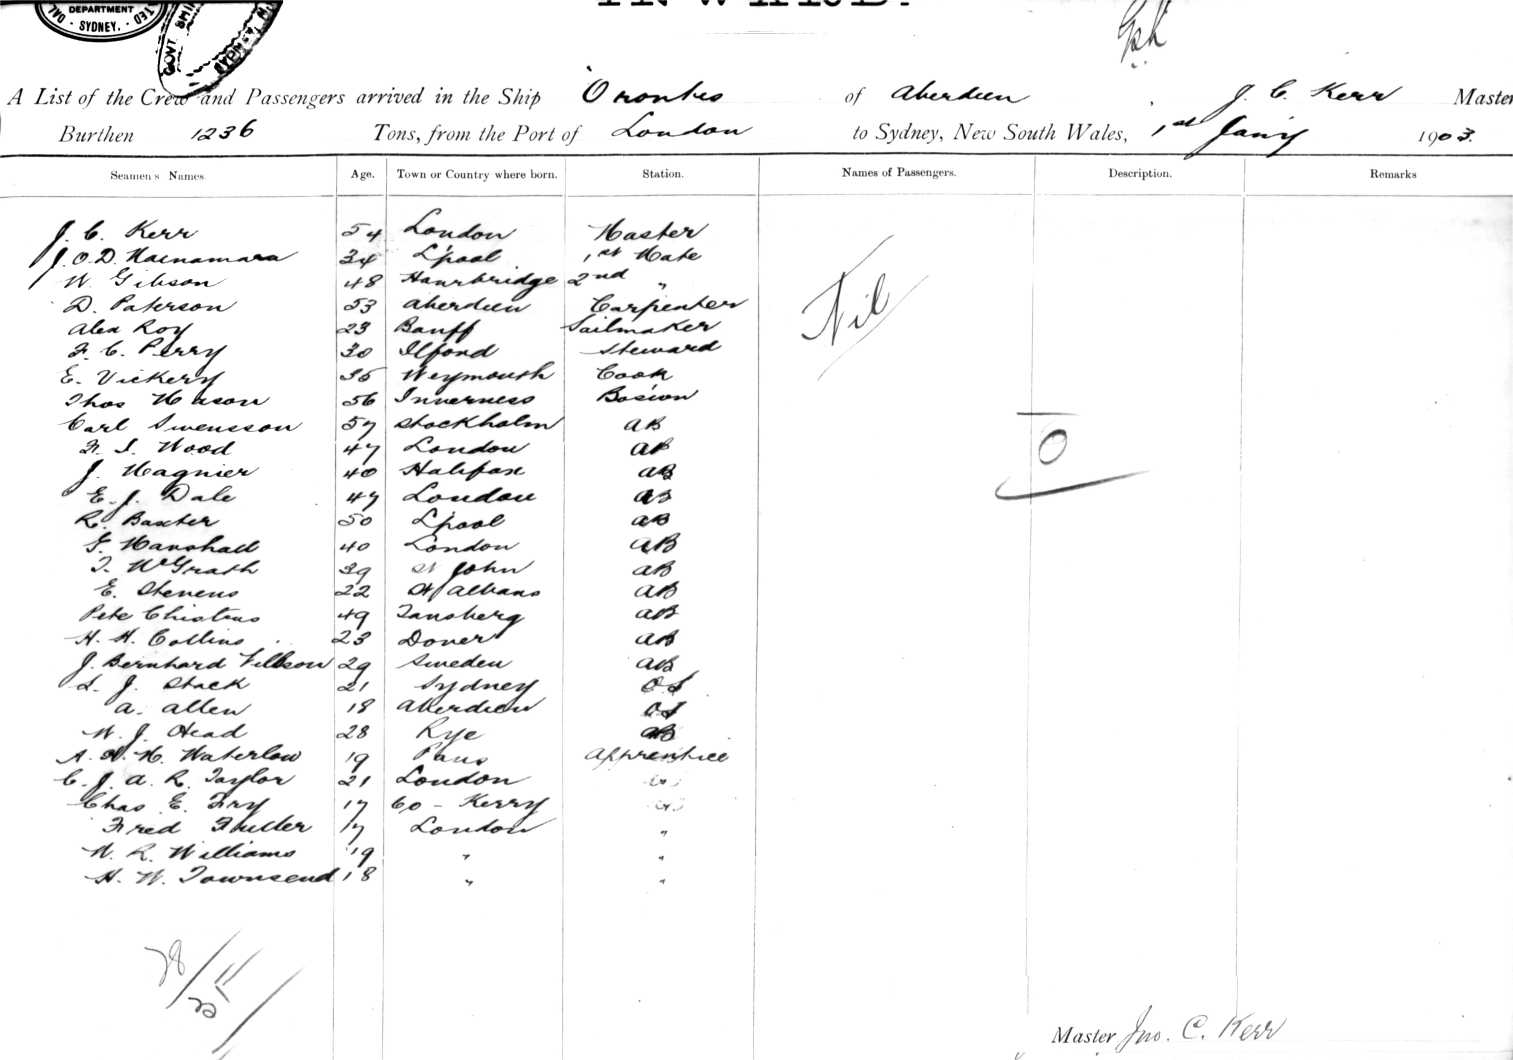 DEPARTMENT
SYDNEY.
GOVT
INWARD.
A List of the Crew and Passengers arrived in the Ship Orontes of Aberdeen, J. C. Kerr Master
Burthen 1236 Tons, from the Port of London to Sydney, New South Wales, 1st Jany 1903.
Seamen's Names. Age. Town or Country where born. Station. Names of Passengers. Description. Remarks
J. C. Kerr 54 London Master
J. O. D. Macnamara 34 L'pool 1st Mate
W. Gibson 48 2nd "
D. Paterson 53 Aberdeen Carpenter
Alex Roy 23 Banff Sailmaker
F. C. Perry 30 Ilford Steward
E. Vickery 36 Weymouth Cook
Thos Mason 56 Inverness Bosion
Nil
Carl Swensson 57 Stockholm AB
F. S. Wood 47 London AB
O
J. Magnier 40 Halifax AB
E. J. Dale 47 London AB
R. Baxter 50 L'pool AB
G. Marshall 40 London AB
T. McGrath 39 St John AB
E. Stevens 22 St Albans AB
Pete 49 Tansberg AB
H. H. Collins 23 Dover AB
J. Bernhard 29 Sweden AB
L. J. Stack 21 Sydney OS
A. Allen 18 Aberdeen OS
W. J. Head 28 Rye AB
A. H. H. Waterlow 19 Paris Apprentice
C. J. A. R. Taylor 21 London
Chas E. Fry 17 Co - Kerry
Fred Fuller 17 London "
W. R. Williams 19 " "
H. W. Townsend 18 " "
28
Master Jno. C. Kerr